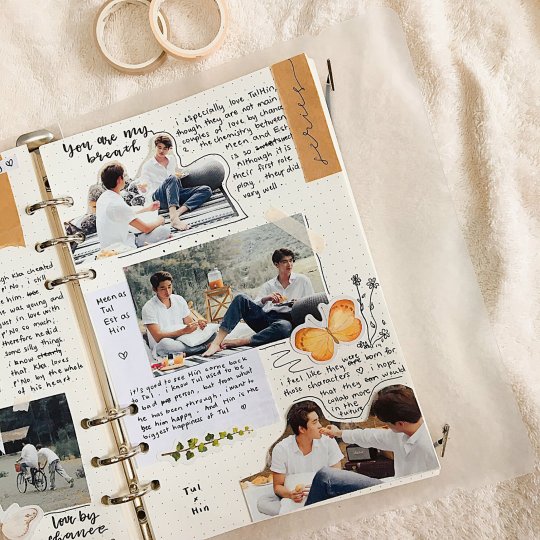 You are my
breath
i especially love TulHin
though they are not main
couples of love by chance
the chemistry between
Meen and Est
is so
Although it is
their first role
play. they did
very well.
series
Meen as
Tul
Est as
Hin
it's good to see Hin come back
to Tul. i know Tul used to be
bad person. but from what
he has been through, i want to
see him happy. And Hin is the
biggest happiness of Tul
i feel like they were born for
those characters i hope
that they would
collab more
in the
future
Tul
x
Hin
ugh Kla cheated
P'No, i still
e him.
he was young and
just in love with
P'No so much,
therefore he did
some silly things
i know
that Kla loves
P'No by the whole
of his heart
love by
chance